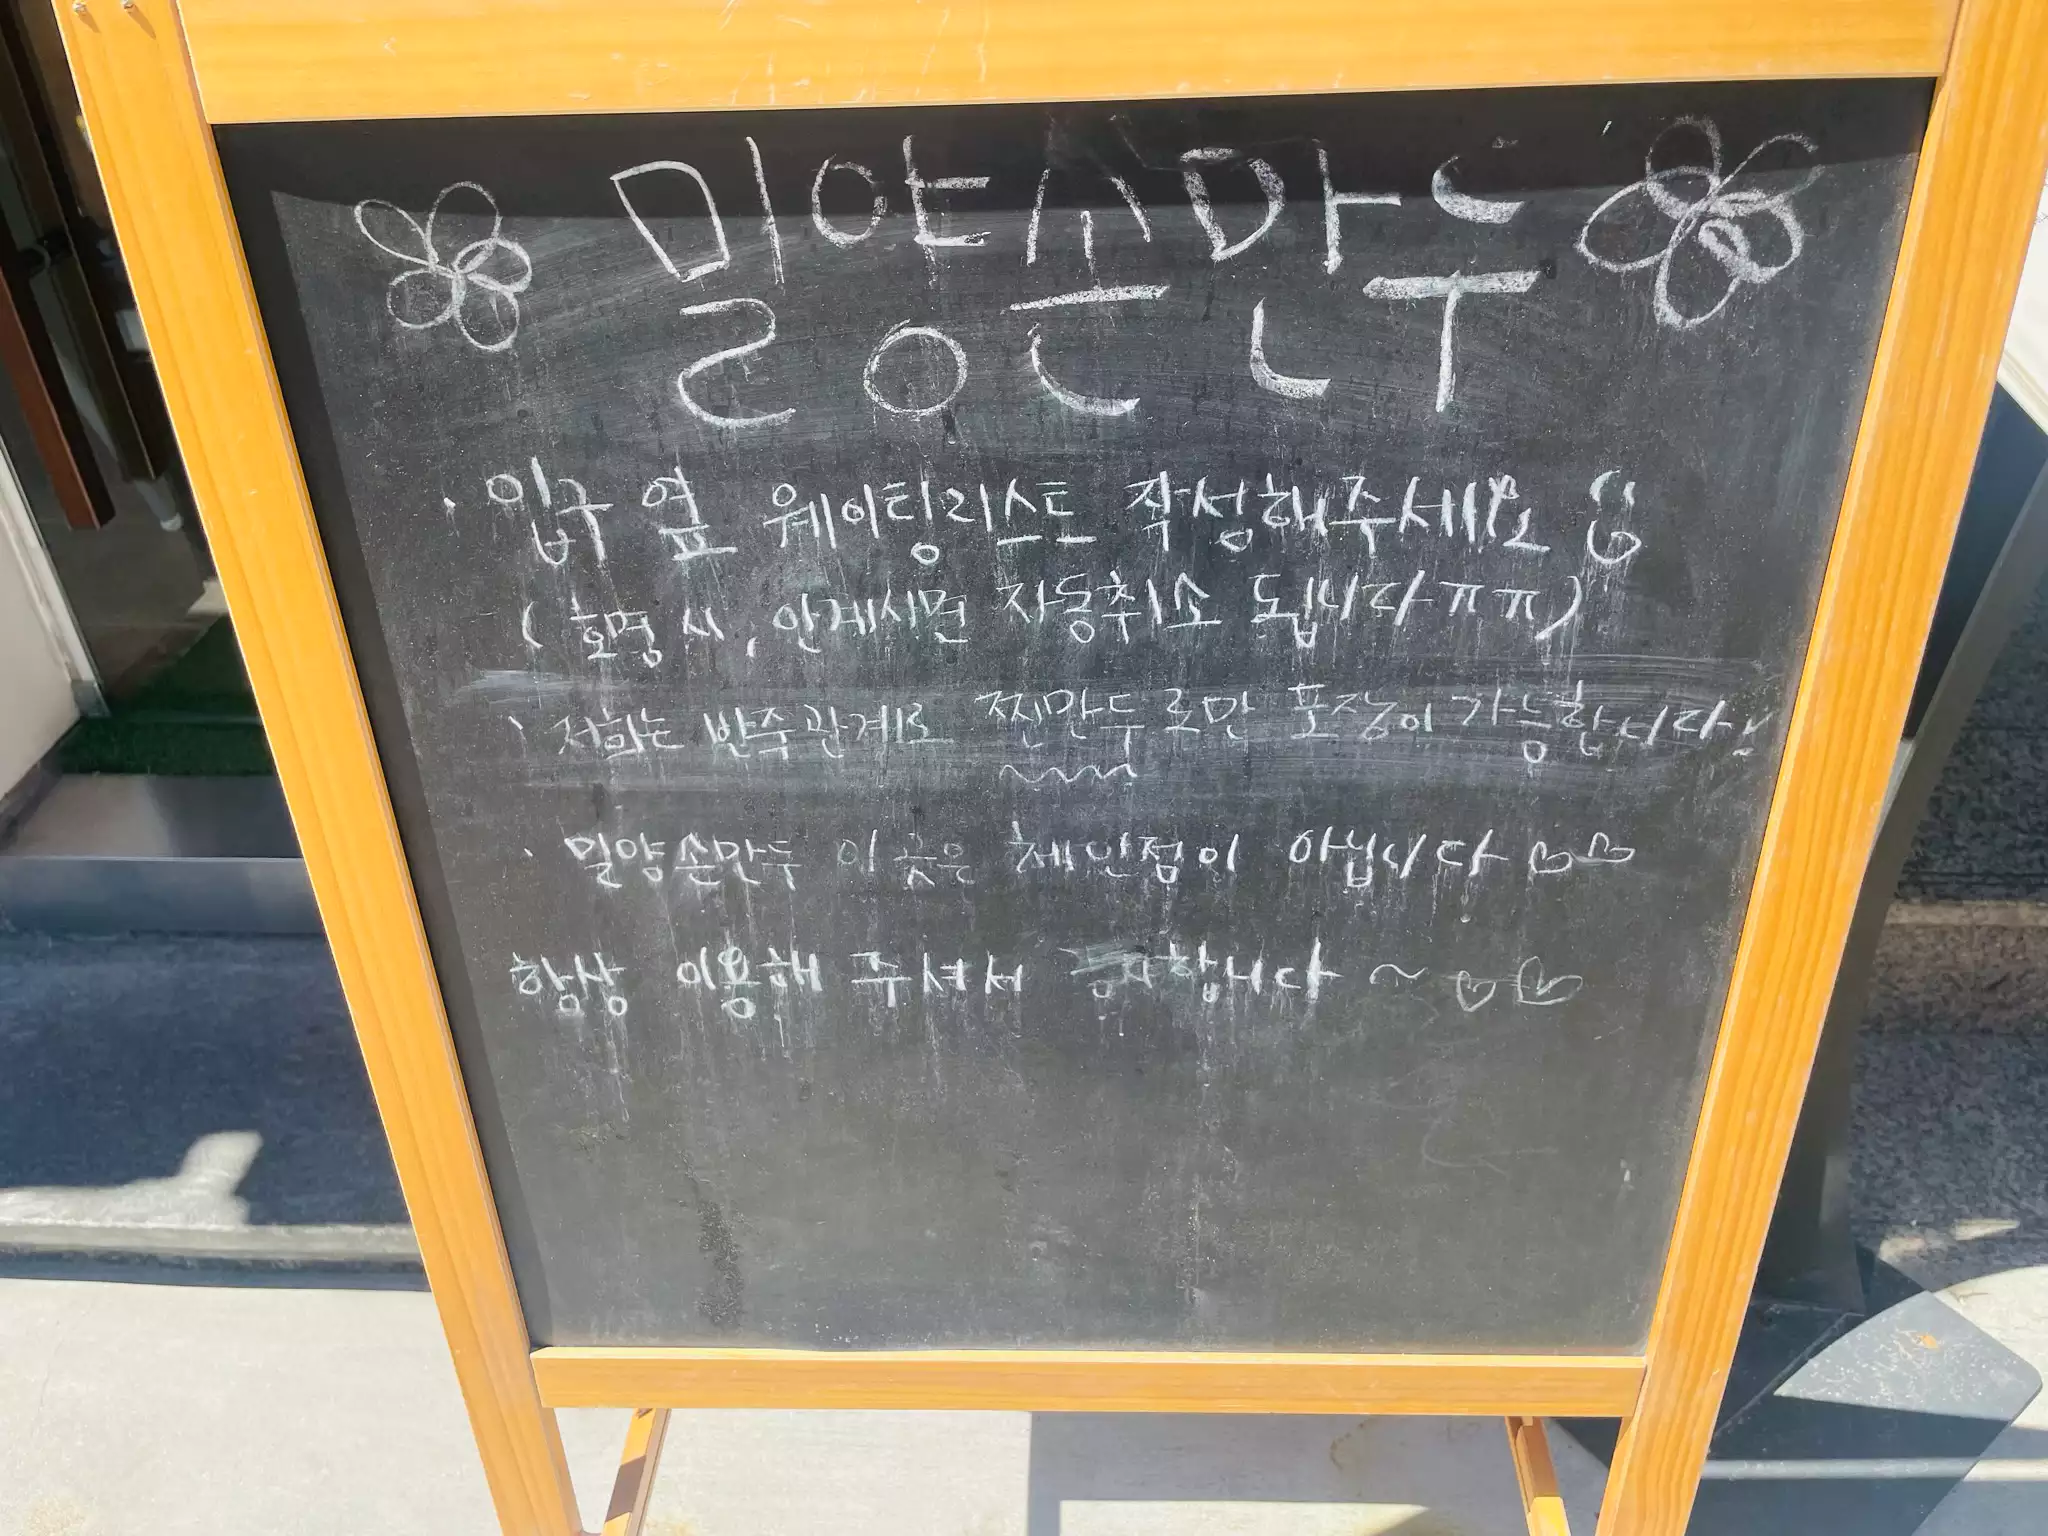 밀양손만두
· 입구 옆 웨이팅리스트 작성해주세요
( 호명 시, 안계시면 자동취소 됩니다ㅠㅠ)
· 저희는 반죽관계로 찐만두로만 포장이 가능합니다!
· 밀양손만두 이곳은 체인점이 아닙니다 ♡♡
항상 이용해 주셔서 감사합니다 ~ ♡♡